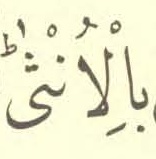 بِالْاُنْثٰىؕ